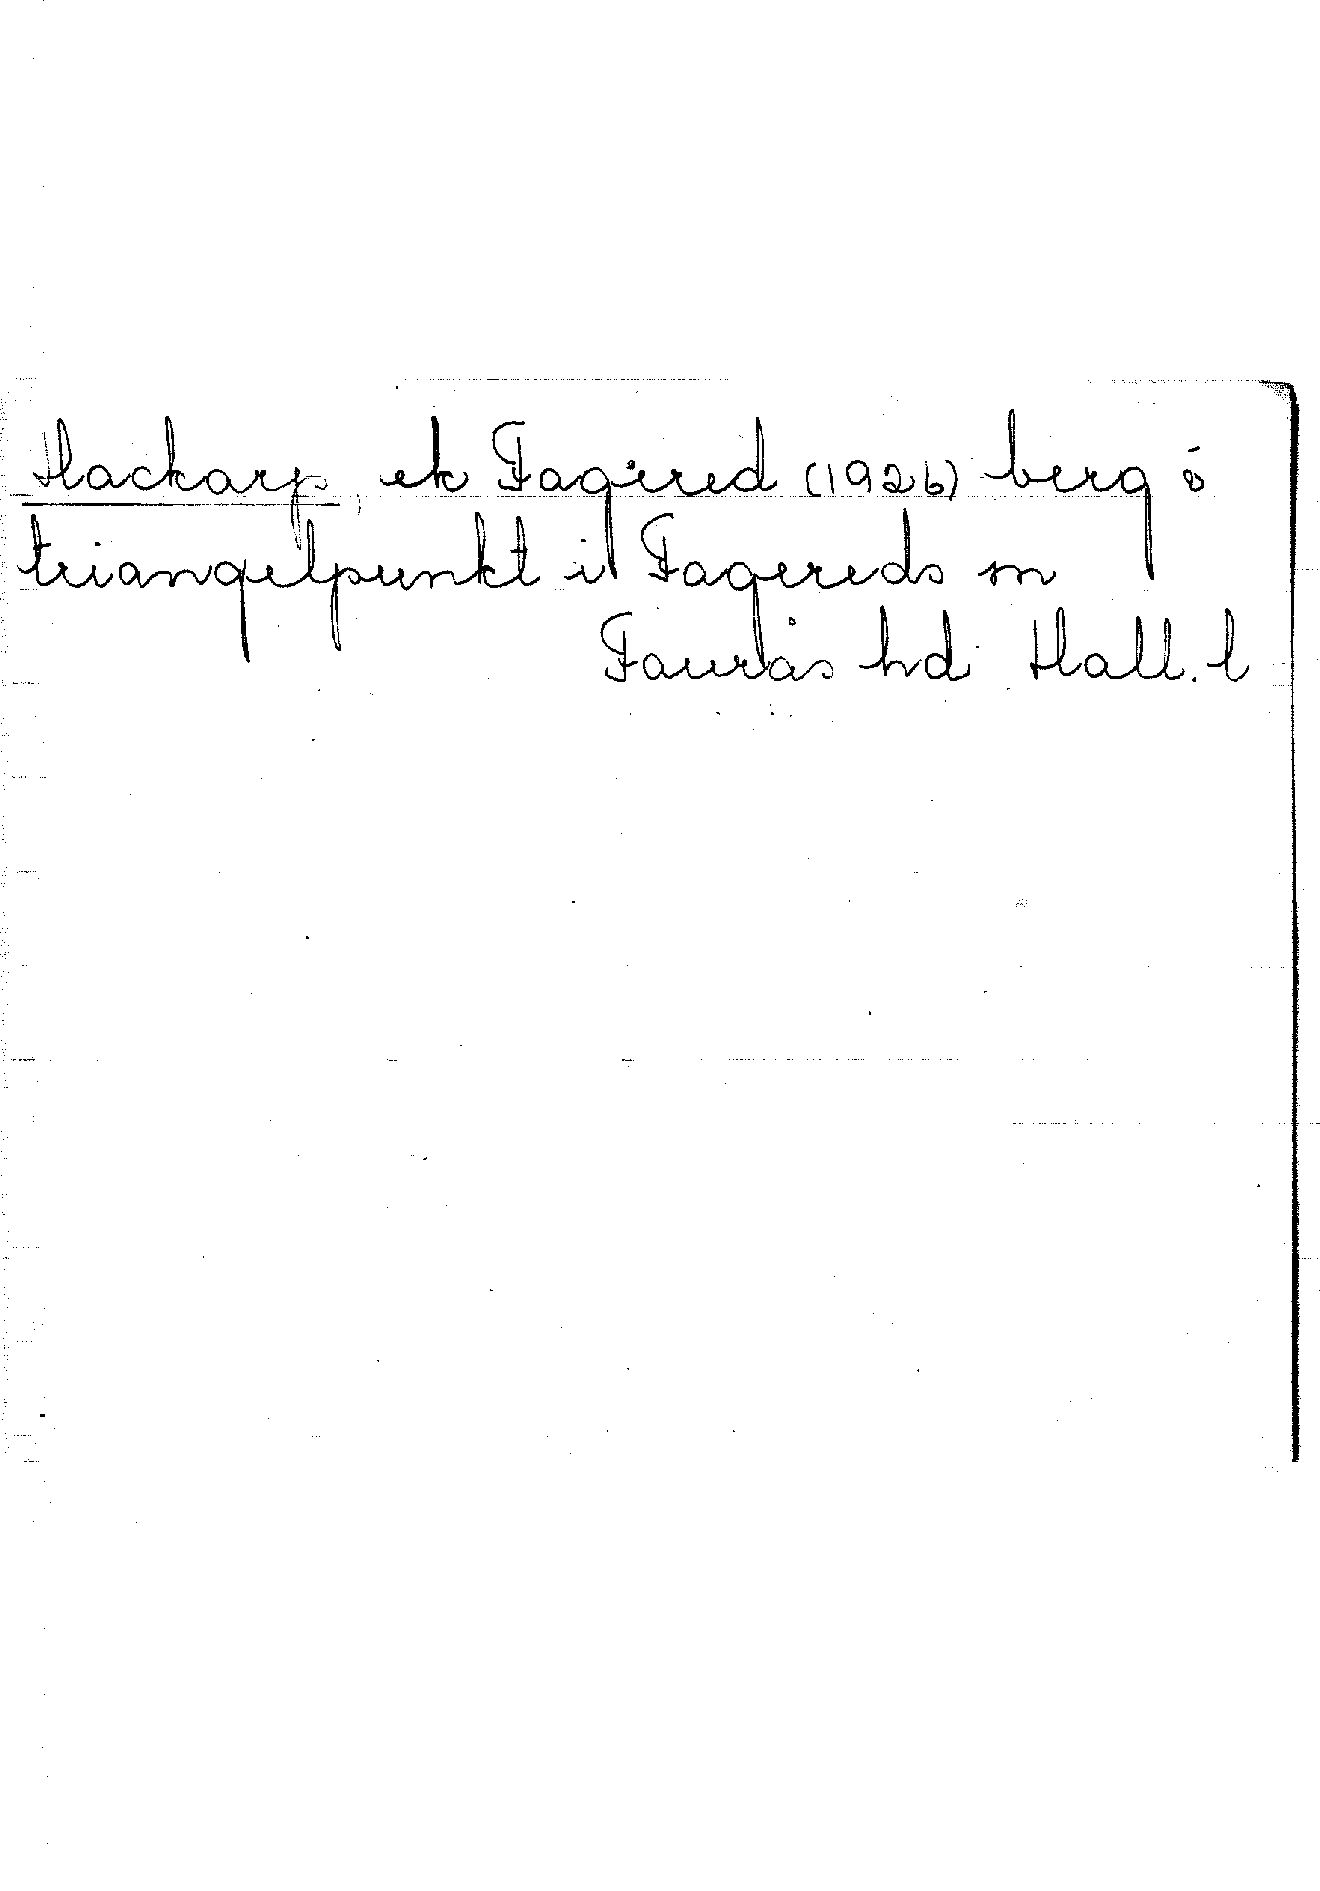 Hackarp, ek Fagered (1926) berg ó
triangelpunkt i Fagereds sn
Faurås hd Hall. l